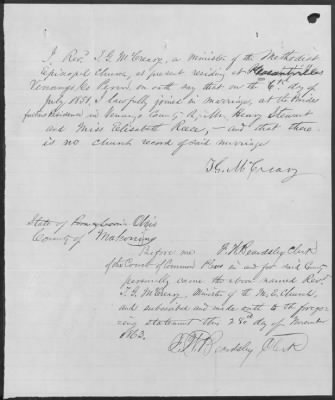 I Rev. T. G. McCreary, a minister of the Methodist
Episcopal Church, at present residing at Pleasantville
Venango Co Penn. on oath say that on the 6th day of
July 1851, I lawfully joined in marriage, at the brides
fathers Residence in Venango County Mr. Henry Stewart
and Miss Elisabeth Race, – and that there
is no church record of said marriage
T. G. McCreary
State of Pennsylvania Ohio
County of Mahoning
Before me F. W. Beardsley Clerk
of the Court of Common Pleas in and for said County
personally came the above named Rev.
T. G. McCreary, Minister of the M. E. Church,
and subscribed and made oath to the forego-
ing statement this 28th day of
1863.
F. W. Beardsley Clerk